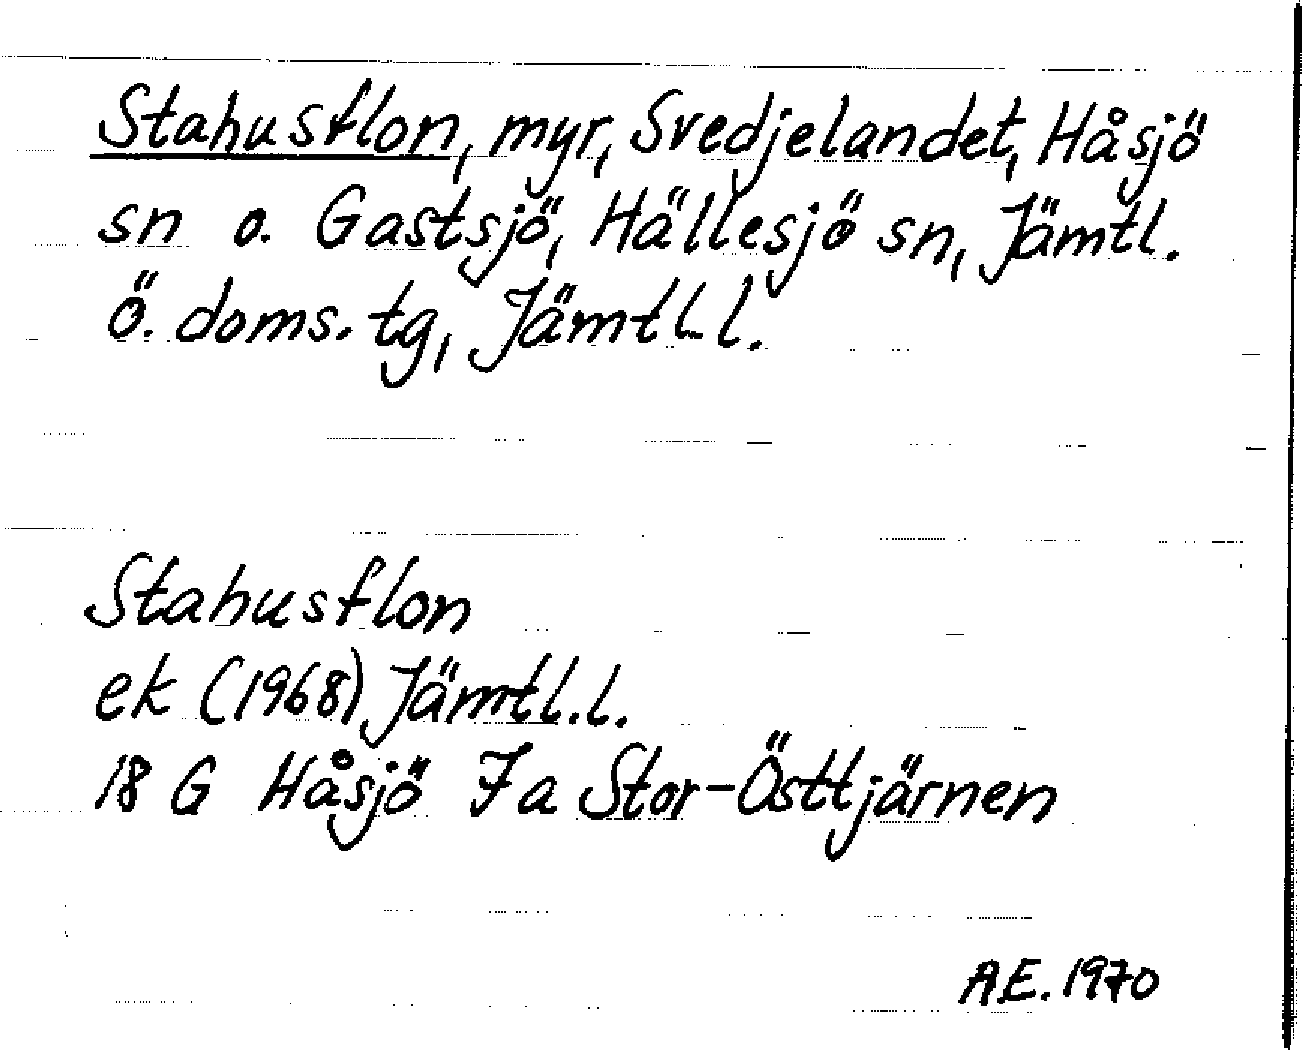 Stahusflon, myr, Svedjelandet, Håsjö
sn o. Gastsjö, Hällesjö sn, Jämtl.
Ö. doms. tg, Jämtl. l.
Stahusflon
ek (1968) Jämtl. l.
18 G Håsjö 7a Stor-Östtjärnen
A.E. 1970